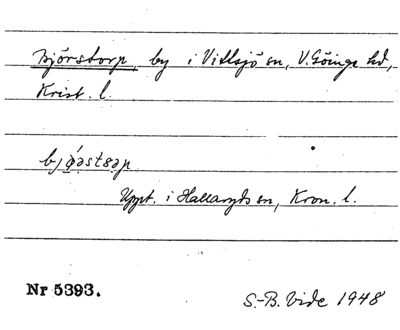 Björstorp, by i Vittsjö sn, V. Göinge hd,
Krist. l.
bjǿəstsəp
Uppt. i Hallaryds sn, Kron. l.
Nr 5393.
S.-B. Vide 1948